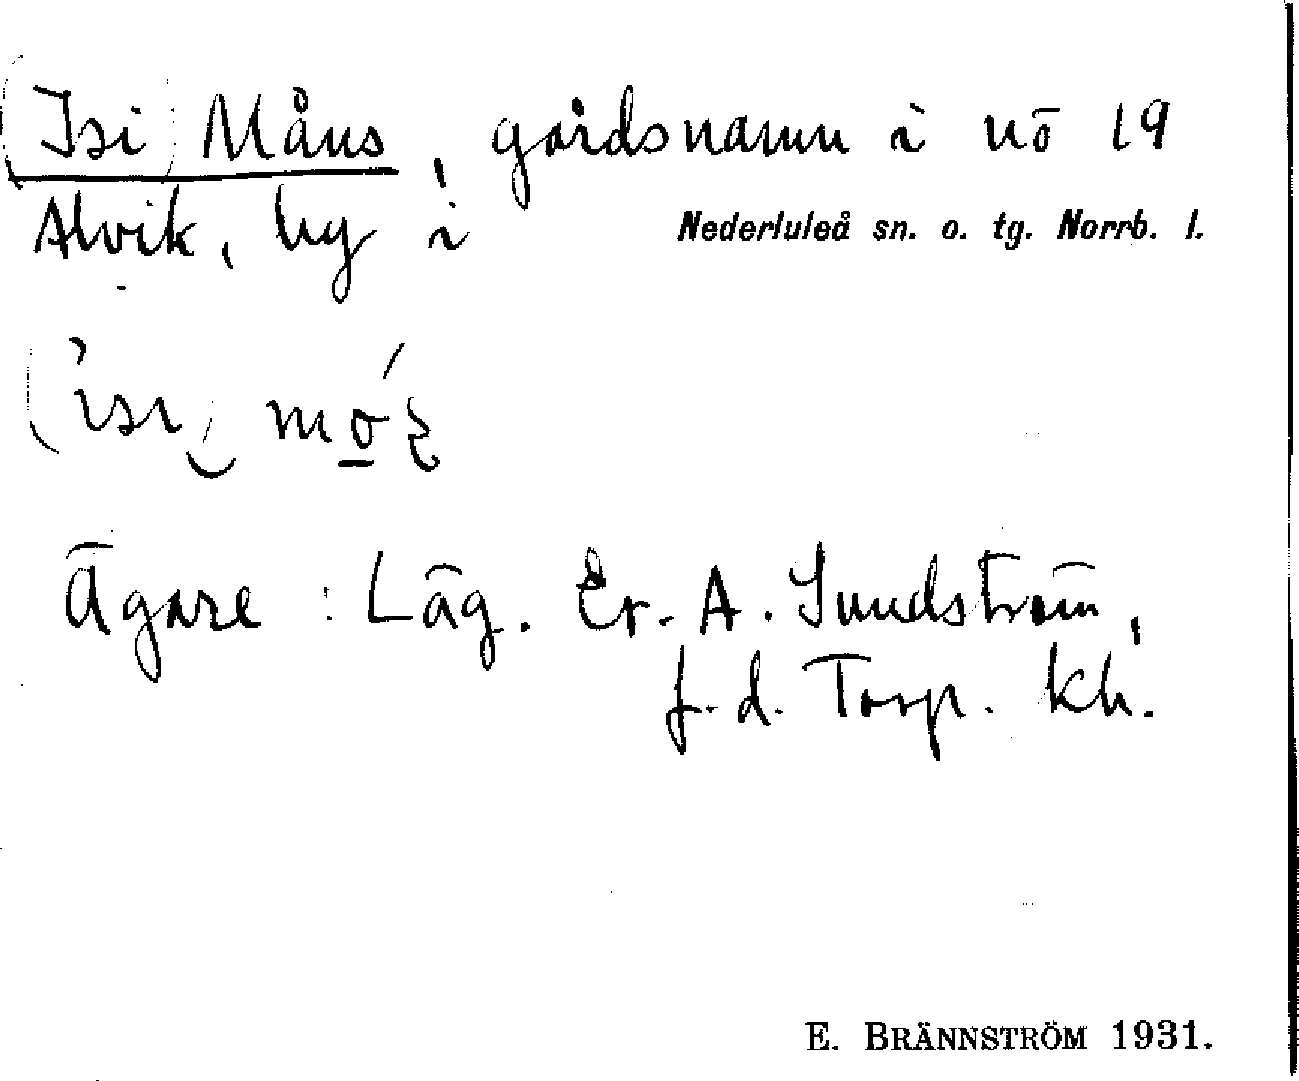 (Isi) Måns, gårdsnamn i nö 19
Alvik, by i Nederluleå sn. o. tg. Norrb. l.
Ägare : Läg. Er. A. Sundström,
f. d. Torp. kh.
E. BRÄNNSTRÖM 1931.